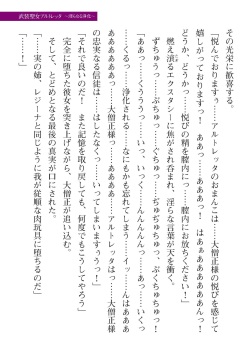 武装聖女アルトレッタ
その光栄に歓喜する。
「悦んでおりますっ……アルトレッタのおまんこは……大僧正様の悦びを感じて
嬉しがっておりますぅっ！　ああっ……あああっ！　はぁぁぁぁぁぁんっ！
どうか、どうかっ……悦びの精を膣内にっ……膣内にお放ちくださいっ！」
燃え滾るエクスタシーに焦がされ呑まれ、淫らな言葉が天を衝く。
ずちゅうっ……ぶちゅうっ……ぢゅぢゅちゅっ……ぶくちゅちゅっ！
「ああっ……くううっ……いっ、いっくうんんんんっ……あっ……いっ
……くるっ……浄化される……なにもかも忘れてしまうっ……イッ……んはああぁ
あっ……大僧正様っ……ああぁぁ……アルトレッタはっ……大僧正様
の忠実なる信徒は……はしたなくっ……いってしまいますぅうっ！」
「それで良いのだ！　また記憶を取り戻しても、何度でもこうしてやろう」
完全に堕ちた彼女を突き上げながら、大僧正が追い込む。
そして、とどめとなる最後の真実が口にされた。
「……実の姉、レジーナと同じように我が従順な肉玩具に堕ちるのだ」
「……！」